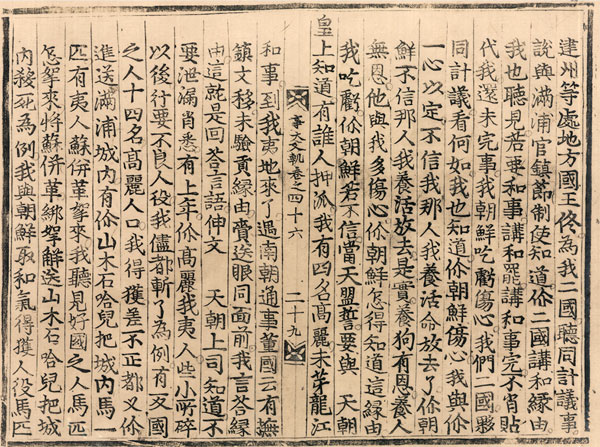 建州等處地方國王佟為我二國聽同計議事
說與滿浦官鎮節制使知道你二國講和緣由
我也聽見若要和事講和罷講和事完不肯貼
代我還未完事我朝鮮吃虧傷心我們二國夥
同計議看何如我也知道你朝鮮傷心我與你
一心以定不信我那人我養活命放去了你朝
鮮不信那人我養活放去是實養狗有恩養人
無恩他與我多傷心你朝鮮怎得知道這緣由
我吃虧你朝鮮若不信當天盟誓要與 天朝
皇上知道有誰人押派我有四名高麗未芽龍江
事大文軌卷之四十六 二十九
和事到我夷地來了過南朝通事董國云有撫
鎮文移未驗貢緣由賫送眼同面前我言答緣
由這就是回答言語伸文 天朝上司知道不
要泄漏肖悉有上年你高麗我夷人些小所碎
以後行要不良人役我儘都斬了為例有反國
之人十四名高麗人口我得獲差不正都又你
進送滿浦城內有你山木石哈兒把城內馬一
匹有夷人蘇併革拏來我聽見好國之人馬匹
怎拏來將蘇併革綁拏解送山木石哈兒把城
內殺死為例我與朝鮮取和氣得獲人役馬匹